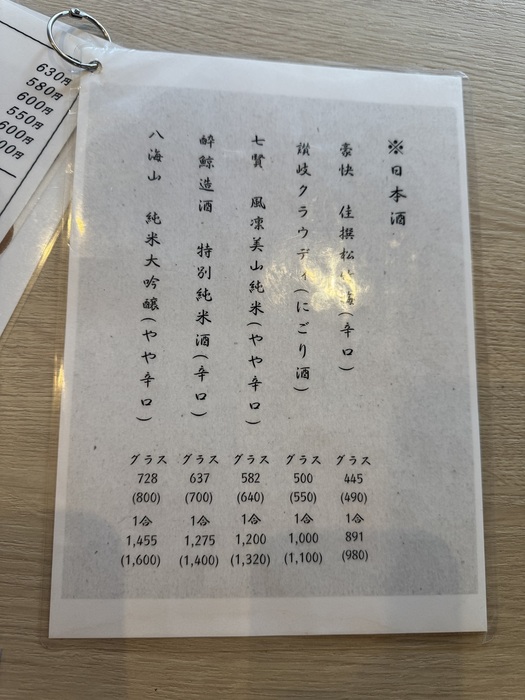 ※日本酒
豪快 佳撰松竹梅(辛口)
グラス
445
(490)
1合
891
(980)
讃岐クラウディ(にごり酒)
グラス
500
(550)
1合
1,000
(1,100)
七賢 風凛美山純米(やや辛口)
グラス
582
(640)
1合
1,200
(1,320)
酔鯨造酒 特別純米酒(辛口)
グラス
637
(700)
1合
1,275
(1,400)
八海山 純米大吟醸(やや辛口)
グラス
728
(800)
1合
1,455
(1,600)
630円
580円
600円
550円
600円
00円